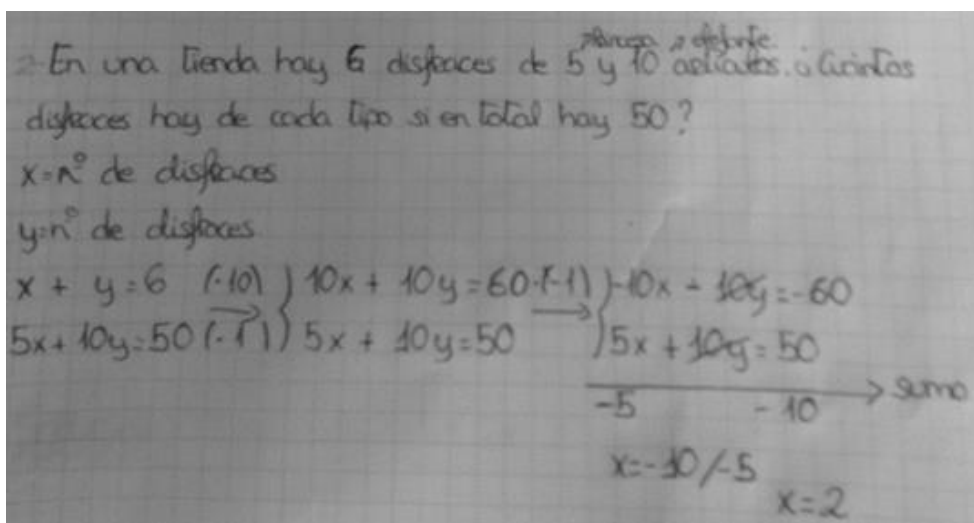 2-En una tienda hay 6 disfraces de 5 y 10 artículos. ¿Cuántos
disfraces hay de cada tipo si en total hay 50?
x=nº de disfraces
y=nº de disfraces
x + y=6 (·10) } 10x + 10y=60·(-1) } -10x - 10y=-60
5x+10y=50 (·1) } 5x + 10y=50 → } 5x + 10y=50
→ sumo
-5 -10
x=-10/-5
x=2